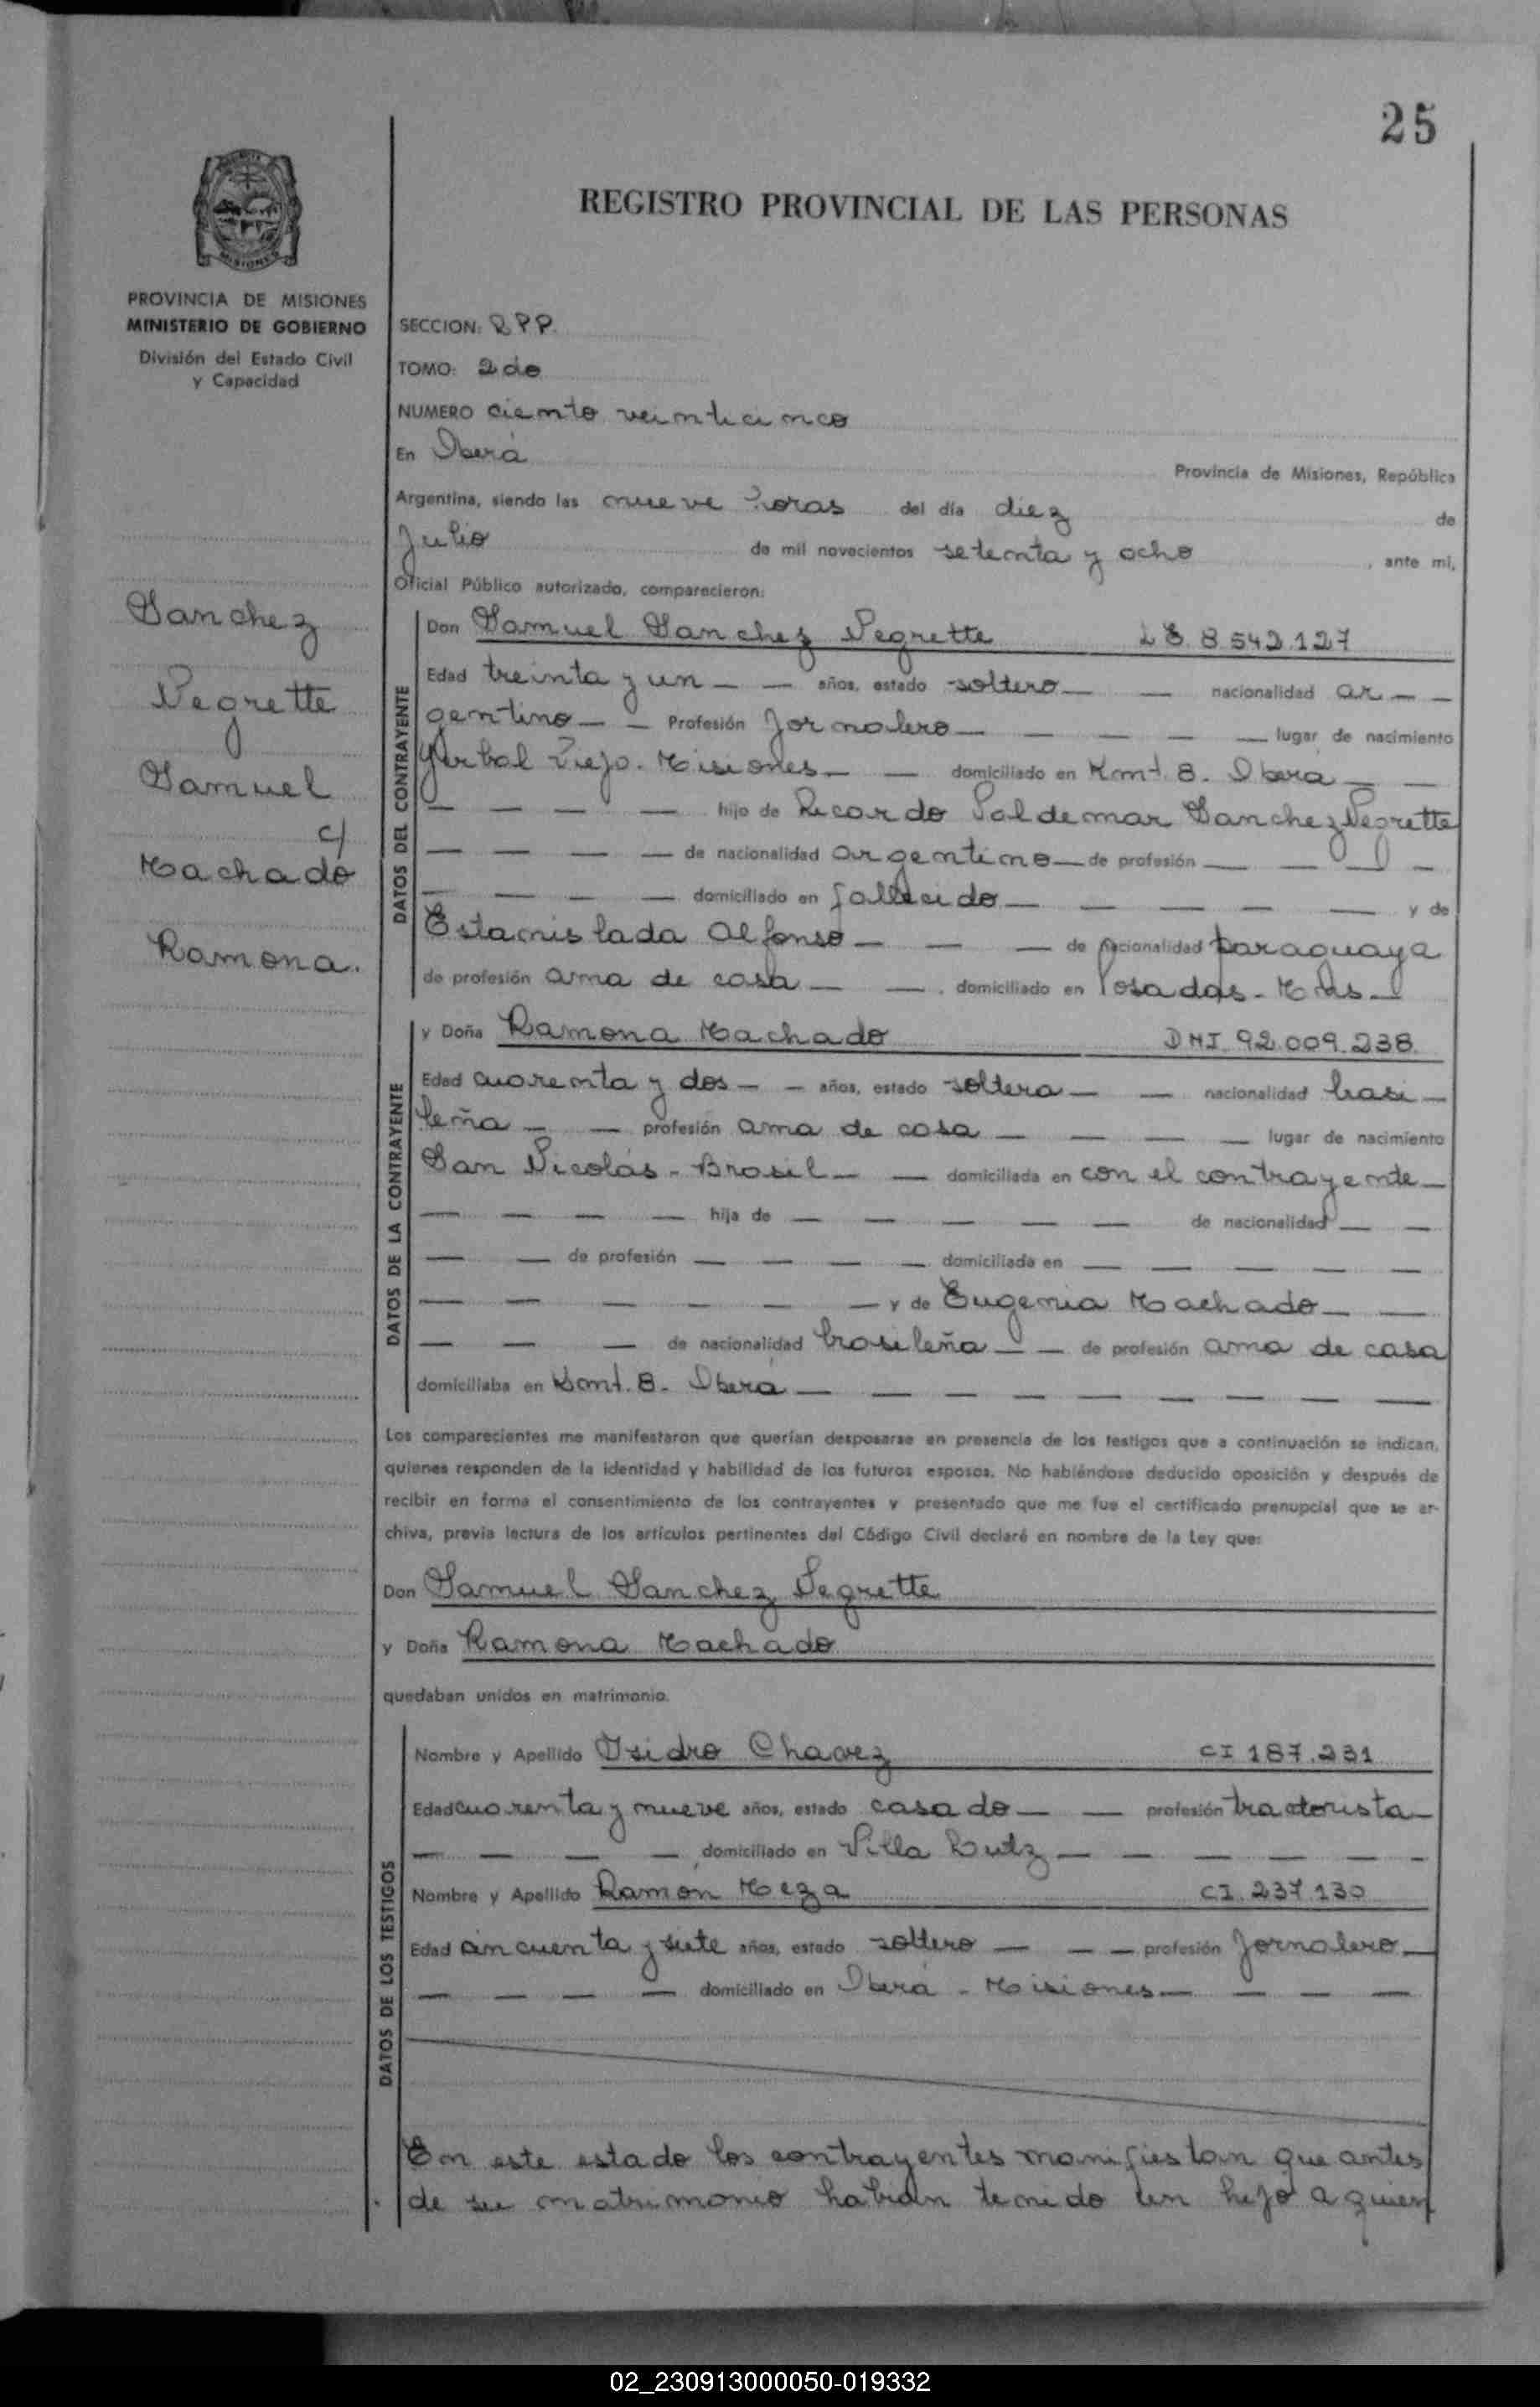 25
REGISTRO PROVINCIAL DE LAS PERSONAS
MISIONES
PROVINCIA DE MISIONES
MINISTERIO DE GOBIERNO
División del Estado Civil
y Capacidad
Sanchez
Negrette
Samuel
c/
Machado
Ramona.
SECCION: RPP.
TOMO: 2do
NUMERO ciento veinticinco
En Oberá Provincia de Misiones, República
Argentina, siendo las nueve horas del día diez de
Julio de mil novecientos setenta y ocho, ante mi,
Oficial Público autorizado, comparecieron:
DATOS DEL CONTRAYENTE
Don Samuel Sanchez Negrette LE 8.542.127
Edad treinta y un — — años, estado soltero — — nacionalidad ar — —
gentino — — Profesión Jornalero — — — — — lugar de nacimiento
Yerbal Viejo. Misiones — — domiciliado en Kmt. 8. Oberá — —
— — — — hijo de Ricardo Valdemar Sanchez Negrette
— — — — de nacionalidad argentino — de profesión — — — —
— — — — domiciliado en fallecido — — — — — — y de
Estanislada Alfonso — — — de nacionalidad paraguaya
de profesión ama de casa — — domiciliado en Posadas - Mnes —
DATOS DE LA CONTRAYENTE
y Doña Ramona Machado DNI 92.009.238.
Edad cuarenta y dos — — años, estado soltera — — nacionalidad brasi —
leña — — profesión ama de casa — — — — lugar de nacimiento
San Nicolás - Brasil — — domiciliada en con el contrayente —
— — — — hija de — — — — — de nacionalidad — —
— — de profesión — — — — domiciliada en — — — — —
— — — — — — y de Eugenia Machado — —
— — — de nacionalidad brasileña — — de profesión ama de casa
domiciliaba en Kmt. 8. Oberá — — — — — — — — —
Los comparecientes me manifestaron que querían desposarse en presencia de los testigos que a continuación se indican,
quienes responden de la identidad y habilidad de los futuros esposos. No habiéndose deducido oposición y después de
recibir en forma el consentimiento de los contrayentes y presentado que me fue el certificado prenupcial que se ar-
chiva, previa lectura de los artículos pertinentes del Código Civil declaré en nombre de la Ley que:
Don Samuel Sanchez Negrette
y Doña Ramona Machado
quedaban unidos en matrimonio.
DATOS DE LOS TESTIGOS
Nombre y Apellido Isidro Chavez CI 187.231
Edad cuarenta y nueve años, estado casado — — profesión tractorista —
— — — — domiciliado en Villa Butz — — — — — —
Nombre y Apellido Ramón Meza CI. 237.130
Edad cincuenta y siete años, estado soltero — — — profesión Jornalero —
— — — — domiciliado en Oberá - Misiones — — — —
En este estado los contrayentes manifiestan que antes
de su matrimonio habían tenido un hijo a quien
02_230913000050-019332